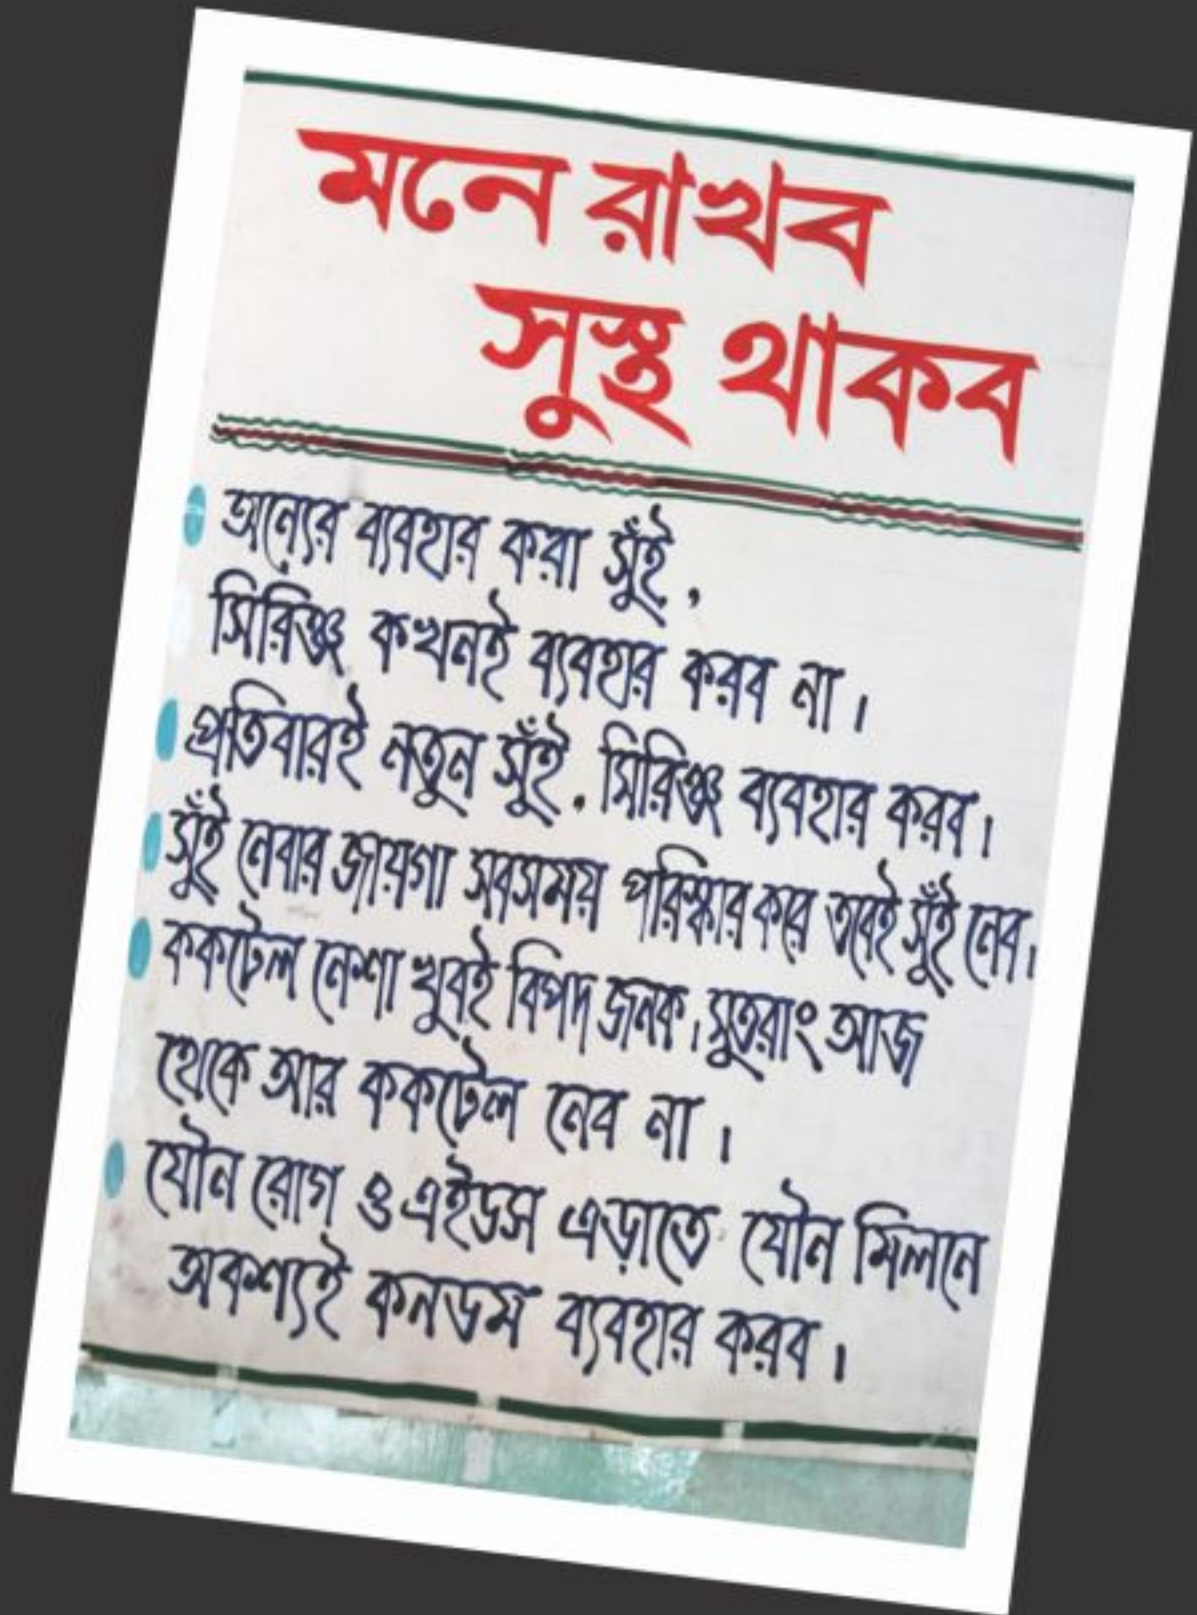 মনে রাখব
সুস্থ থাকব
অন্যের ব্যবহার করা সুঁই,
সিরিঞ্জ কখনই ব্যবহার করব না।
প্রতিবারই নতুন সুঁই, সিরিঞ্জ ব্যবহার করব।
সুঁই নেবার জায়গা সবসময় পরিস্কার করে তবেই সুঁই নেব।
ককটেল নেশা খুবই বিপদ জনক। সুতরাং আজ
থেকে আর ককটেল নেব না।
যৌন রোগ ও এইডস এড়াতে যৌন মিলনে
অবশ্যই কনডম ব্যবহার করব।